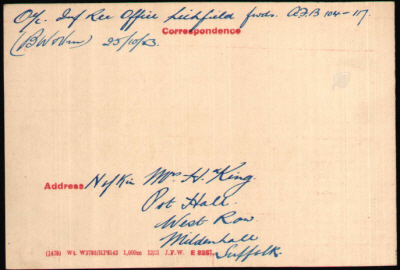 O/c. Inf Rec Office Lichfield fwds. AFB 104-117.
Correspondence
(BW&Vm) 25/10/23.
Address. N/Kin Mrs H. King.
Pot Hall.
West Row.
Mildenhall
Suffolk.
(1478) Wt. W3780/H.P8143 1,000m 12/21 J.F.W. E 8251.